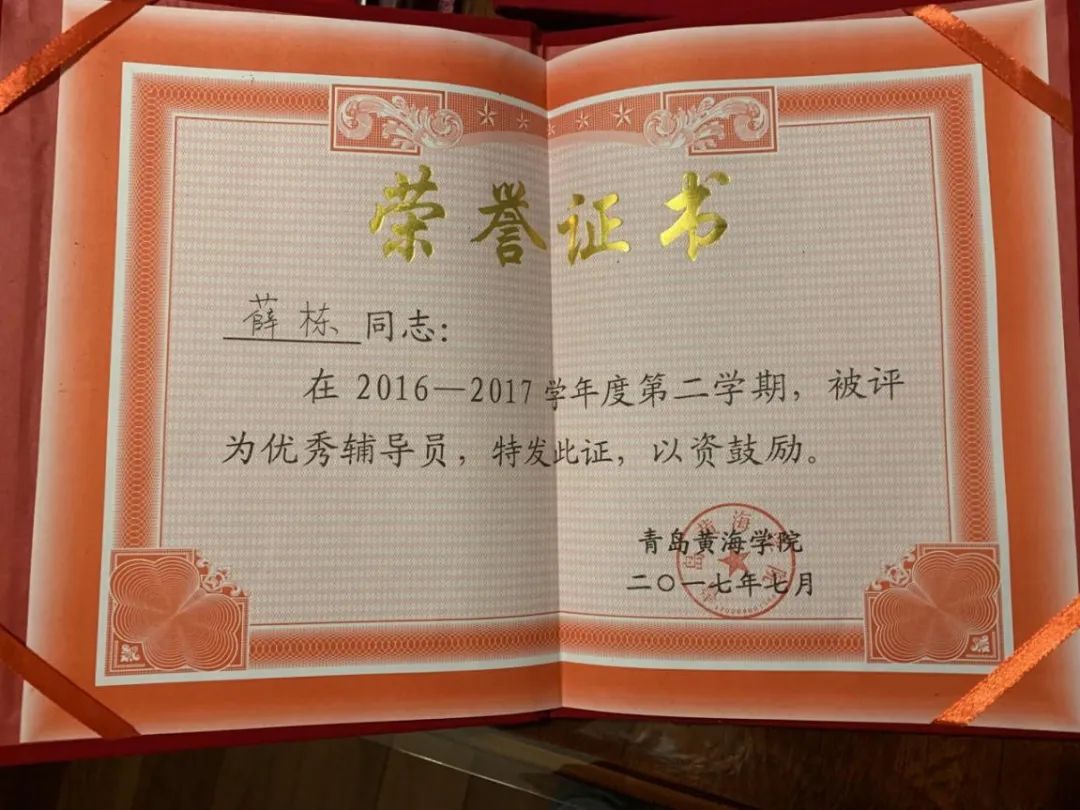 荣誉证书
薛栋同志：
在2016—2017学年度第二学期，被评
为优秀辅导员，特发此证，以资鼓励。
青岛黄海学院
二〇一七年七月